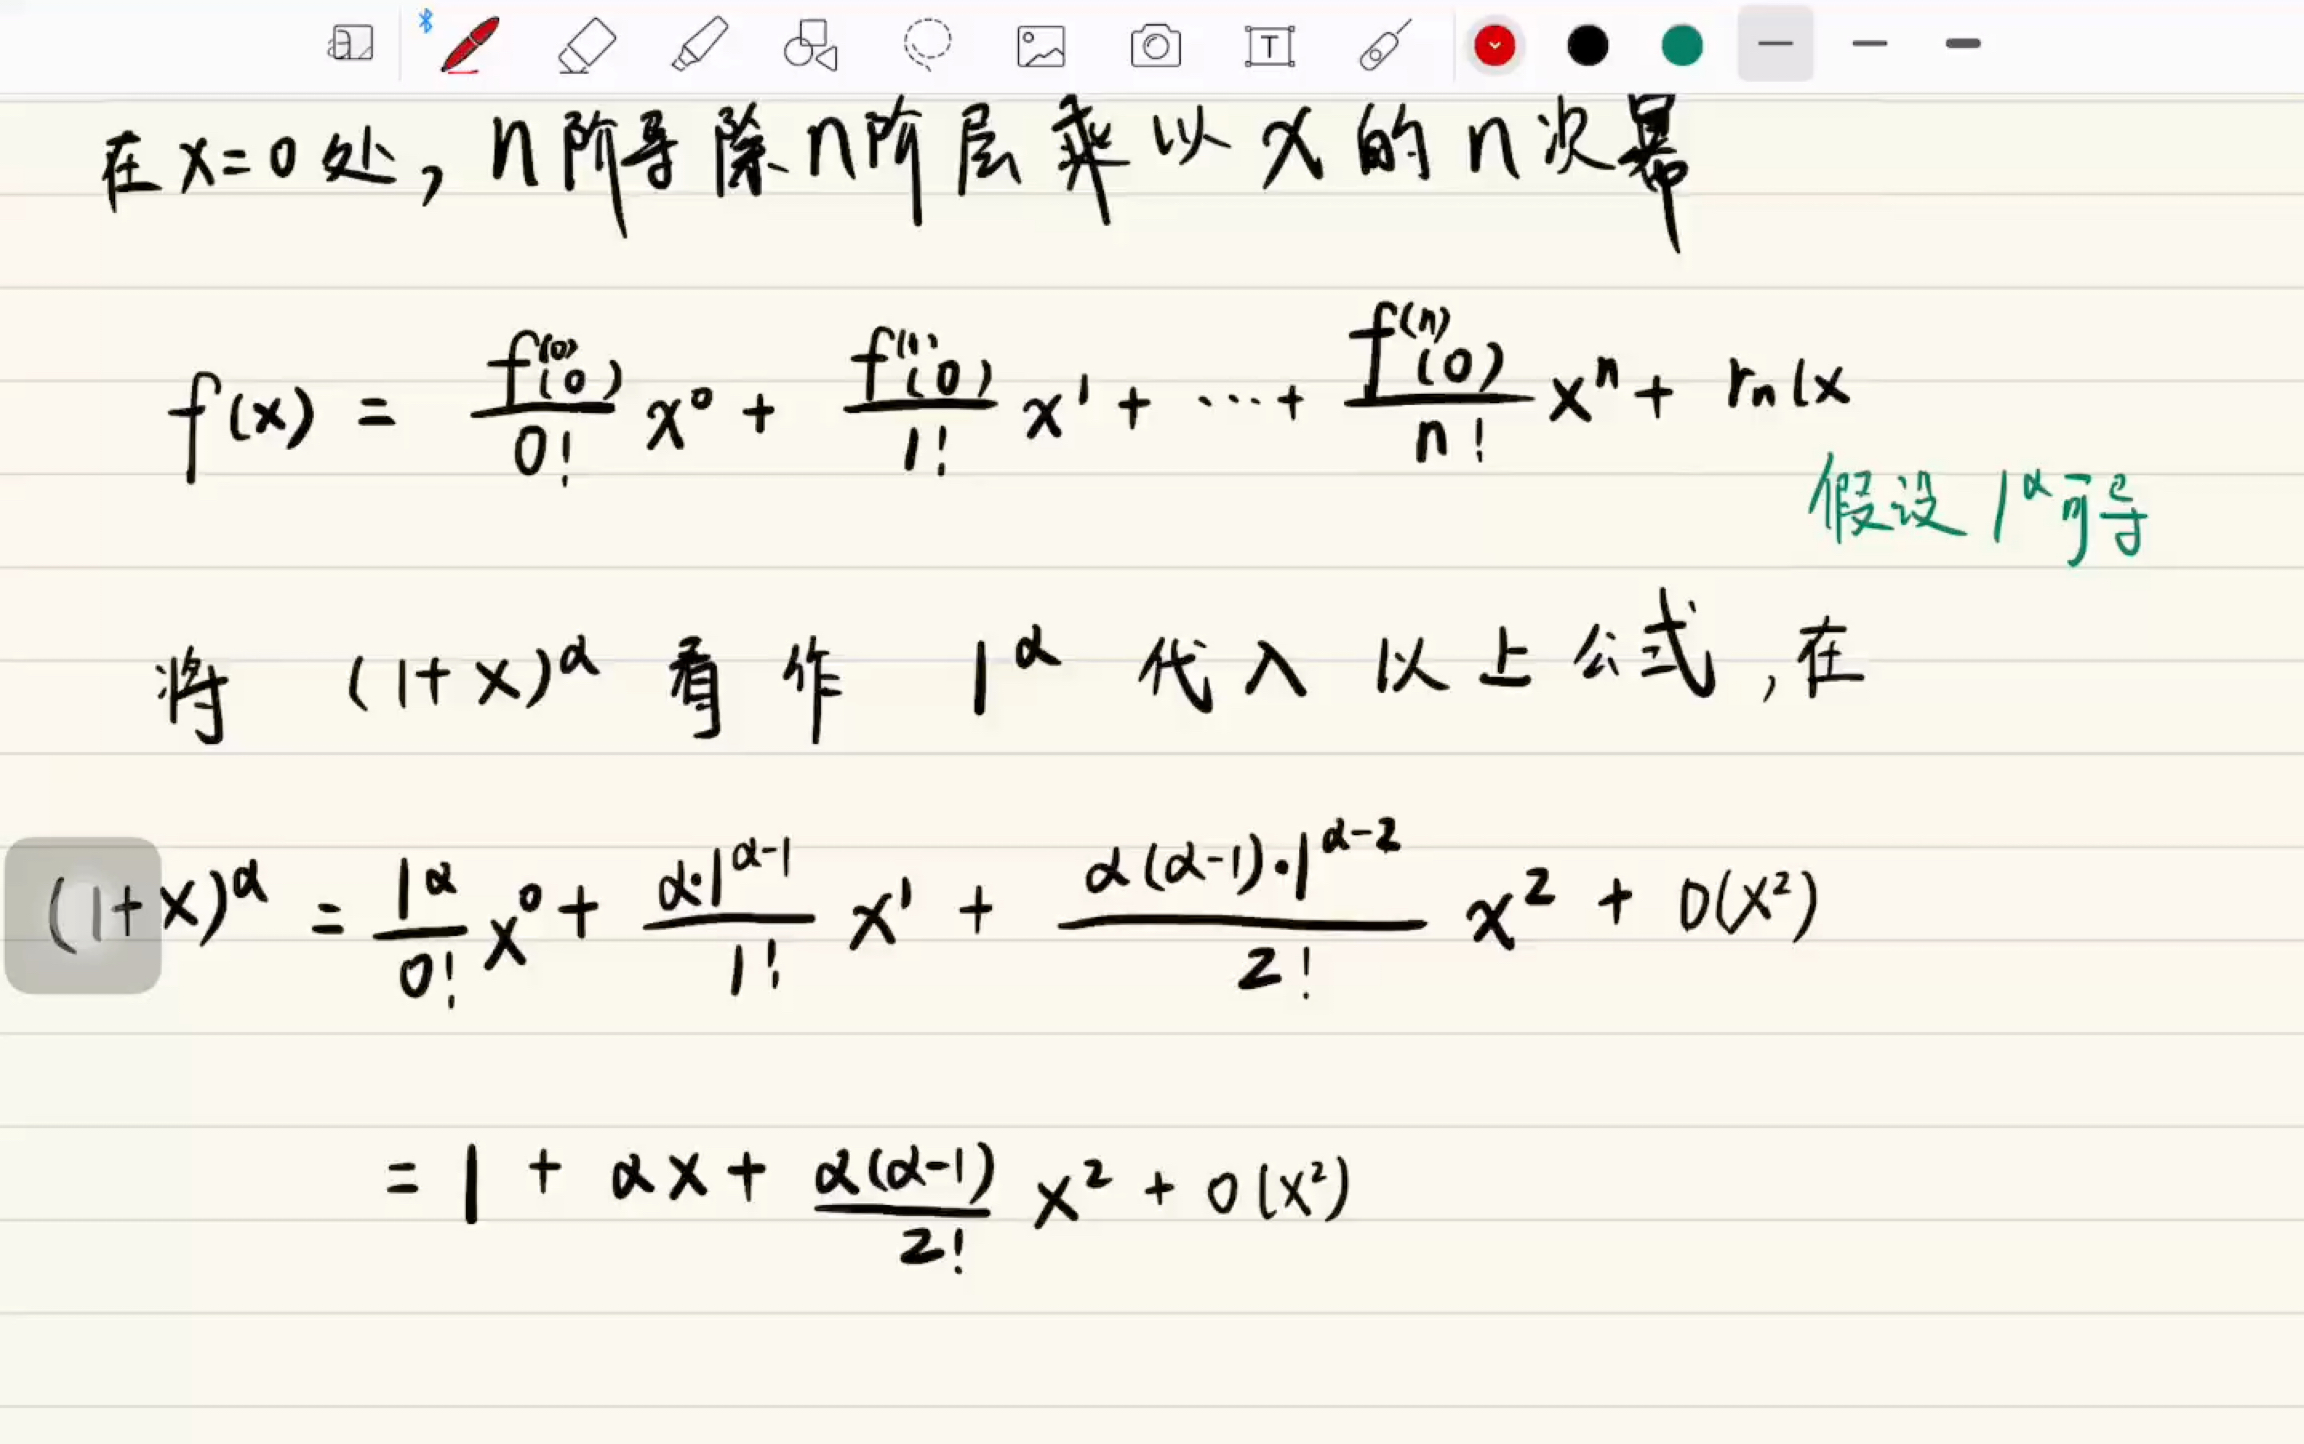 在 x=0 处, n阶导除n阶层乘以 x 的 n次幂
f(x) = f⁽⁰⁾(0)/0! x⁰ + f⁽¹⁾(0)/1! x¹ + ⋯ + f⁽ⁿ⁾(0)/n! xⁿ + rn(x
假设 1^α可导
将 (1+x)^α 看作 1^α 代入以上公式,在
(1+x)^α = 1^α/0! x⁰ + α·1^(α-1)/1! x¹ + α(α-1)·1^(α-2)/2! x² + o(x²)
= 1 + αx + α(α-1)/2! x² + o(x²)